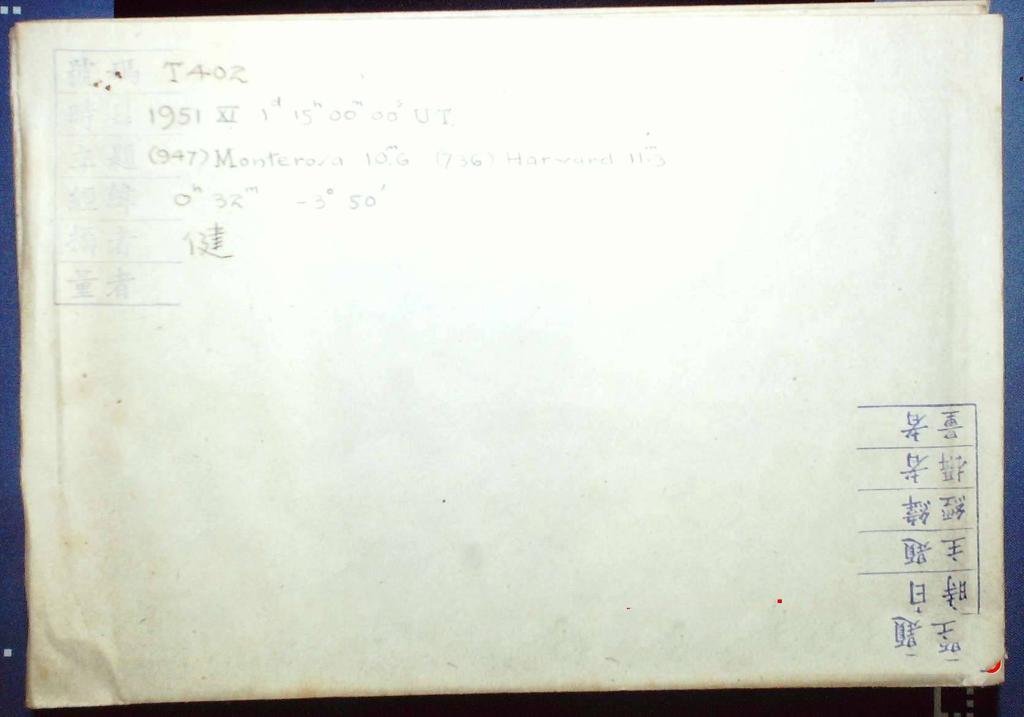 號碼 T402
時日 1951 XI 1ᵈ 15ʰ 00ᵐ 00ˢ UT.
主題 (947) Monterosa 10ᵐ.6 (736) Harvard 11ᵐ.3
經緯 0ʰ 32ᵐ -3° 50′
攝者 健
量者
量者
攝者
經緯
主題
時日
主題